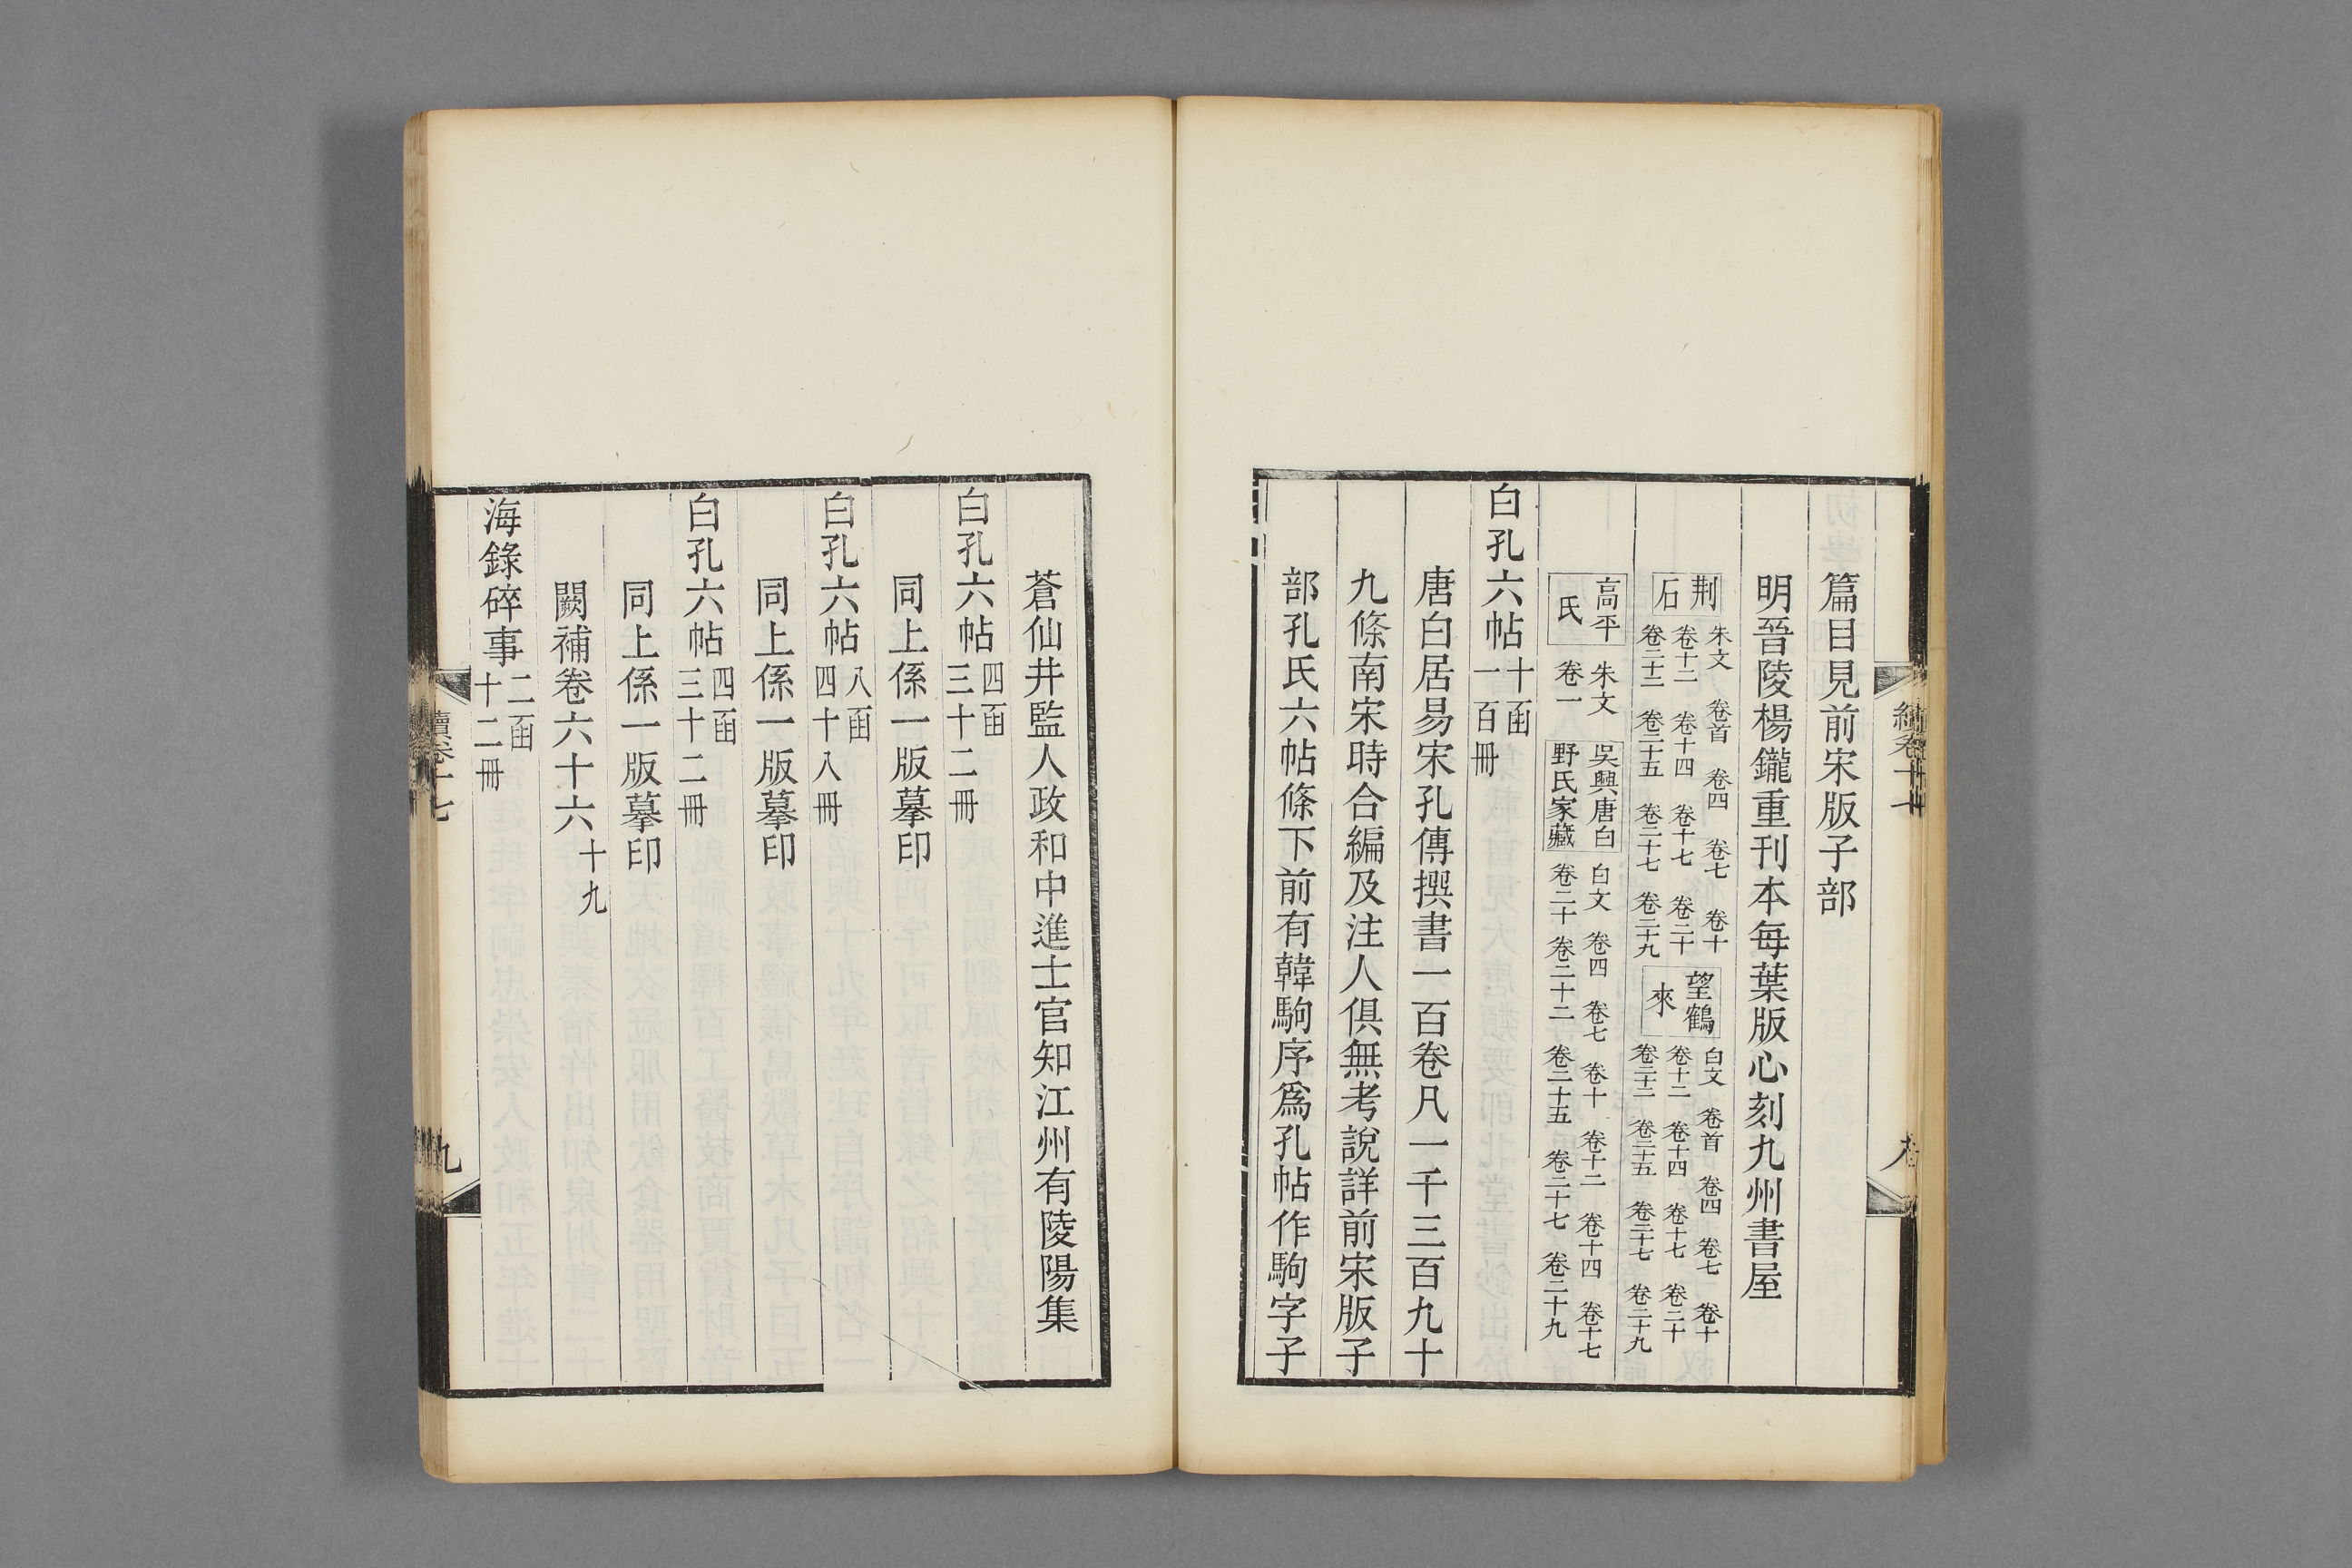 篇目見前宋版子部
明晉陵楊鑨重刊本每葉版心刻九州書屋
荆石 朱文 卷首 卷四 卷七 卷十 卷十二 卷十四 卷十七 卷二十 卷二十二 卷二十五 卷二十七 卷二十九 望鶴來 白文 卷首 卷四 卷七 卷十 卷十二 卷十四 卷十七 卷二十 卷二十二 卷二十五 卷二十七 卷二十九
高平氏 朱文 卷一 吳興唐白野氏家藏 白文 卷四 卷七 卷十 卷十二 卷十四 卷十七 卷二十 卷二十二 卷二十五 卷二十七 卷二十九
白孔六帖 十函一百冊
唐白居易宋孔傳撰書一百卷凡一千三百九十
九條南宋時合編及注人俱無考說詳前宋版子
部孔氏六帖條下前有韓駒序爲孔帖作駒字子
蒼仙井監人政和中進士官知江州有陵陽集
白孔六帖 四函三十二冊
同上係一版摹印
白孔六帖 八函四十八冊
同上係一版摹印
白孔六帖 四函三十二冊
同上係一版摹印
闕補卷六十六 十九
海錄碎事 二函十二冊
續卷十七
九